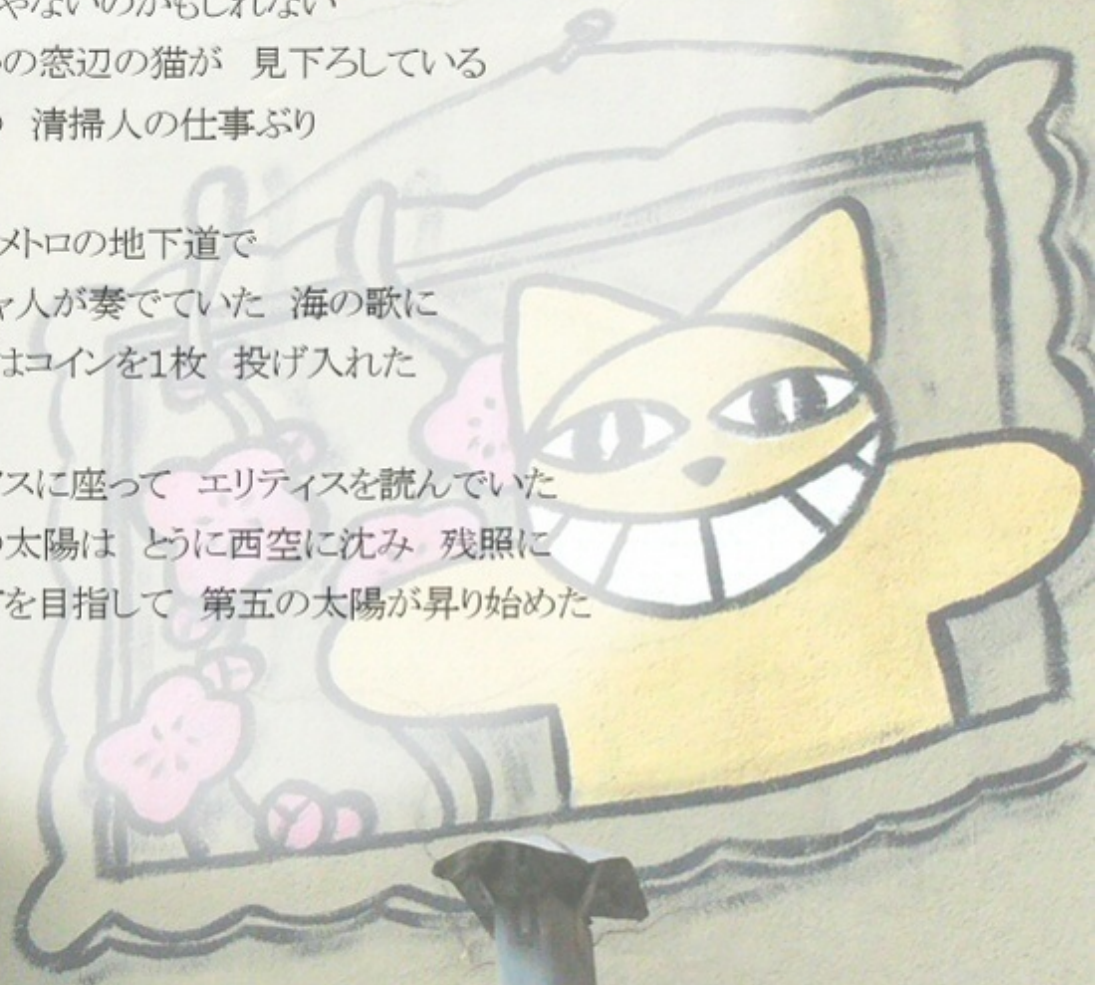 やないのかもしれない
の窓辺の猫が 見下ろしている
清掃人の仕事ぶり
メトロの地下道で
ャ人が奏でていた 海の歌に
はコインを1枚 投げ入れた
スに座って エリティスを読んでいた
太陽は とうに西空に沈み 残照に
を目指して 第五の太陽が昇り始めた